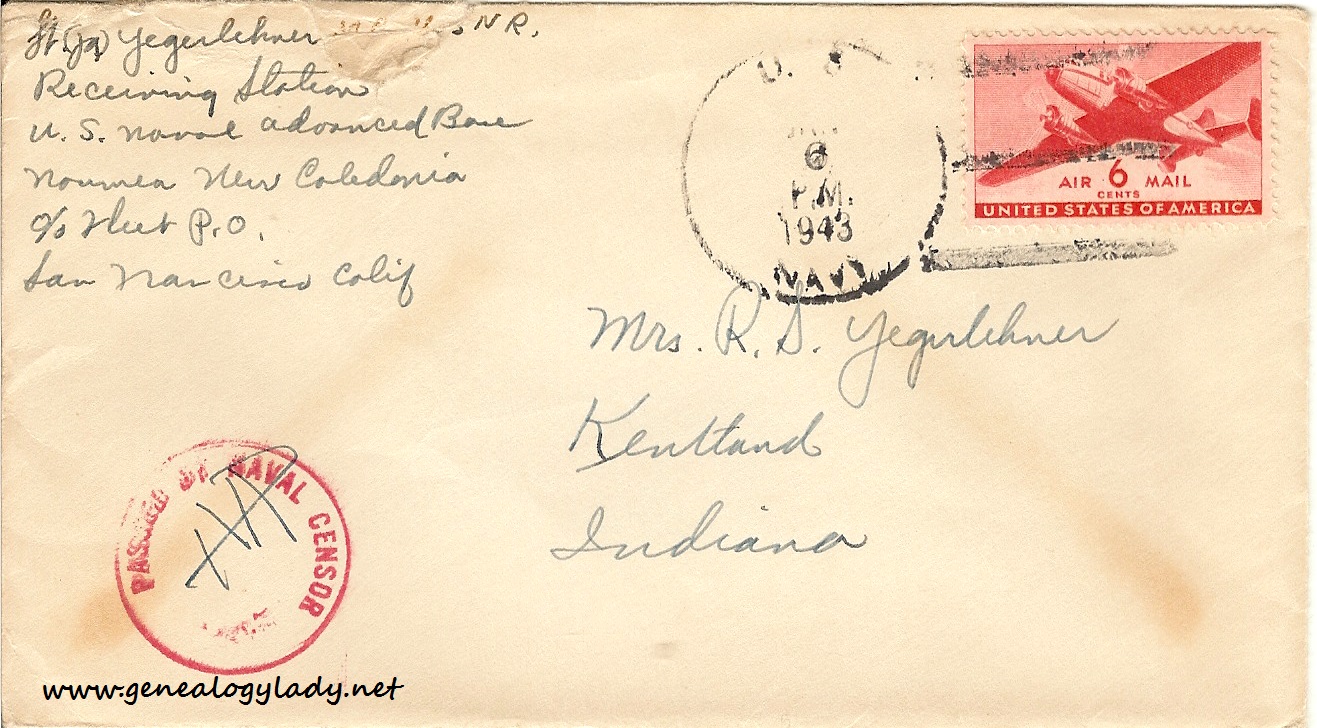 Lt.(jg) Yegerlehner S N R.
Receiving Station
U. S. Naval Advanced Base
Noumea New Caledonia
c/o Fleet P.O.
San Francisco Calif
U. S.
6
P.M.
1943
NAVY
AIR 6 MAIL
CENTS
UNITED STATES OF AMERICA
Mrs. R. D. Yegerlehner
Kentland
Indiana
PASSED BY NAVAL CENSOR
www.genealogylady.net